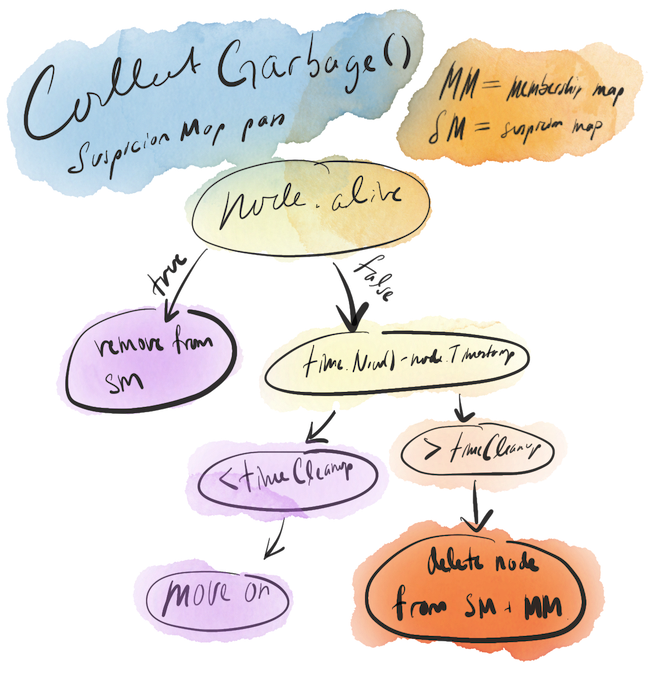 Collect Garbage()
Suspicion Map part
MM = membership map
SM = suspicion map
node.alive
true
false
remove from
SM
time.Now() - node.Timestamp
< timeCleanup
> timeCleanup
move on
delete node
from SM + MM